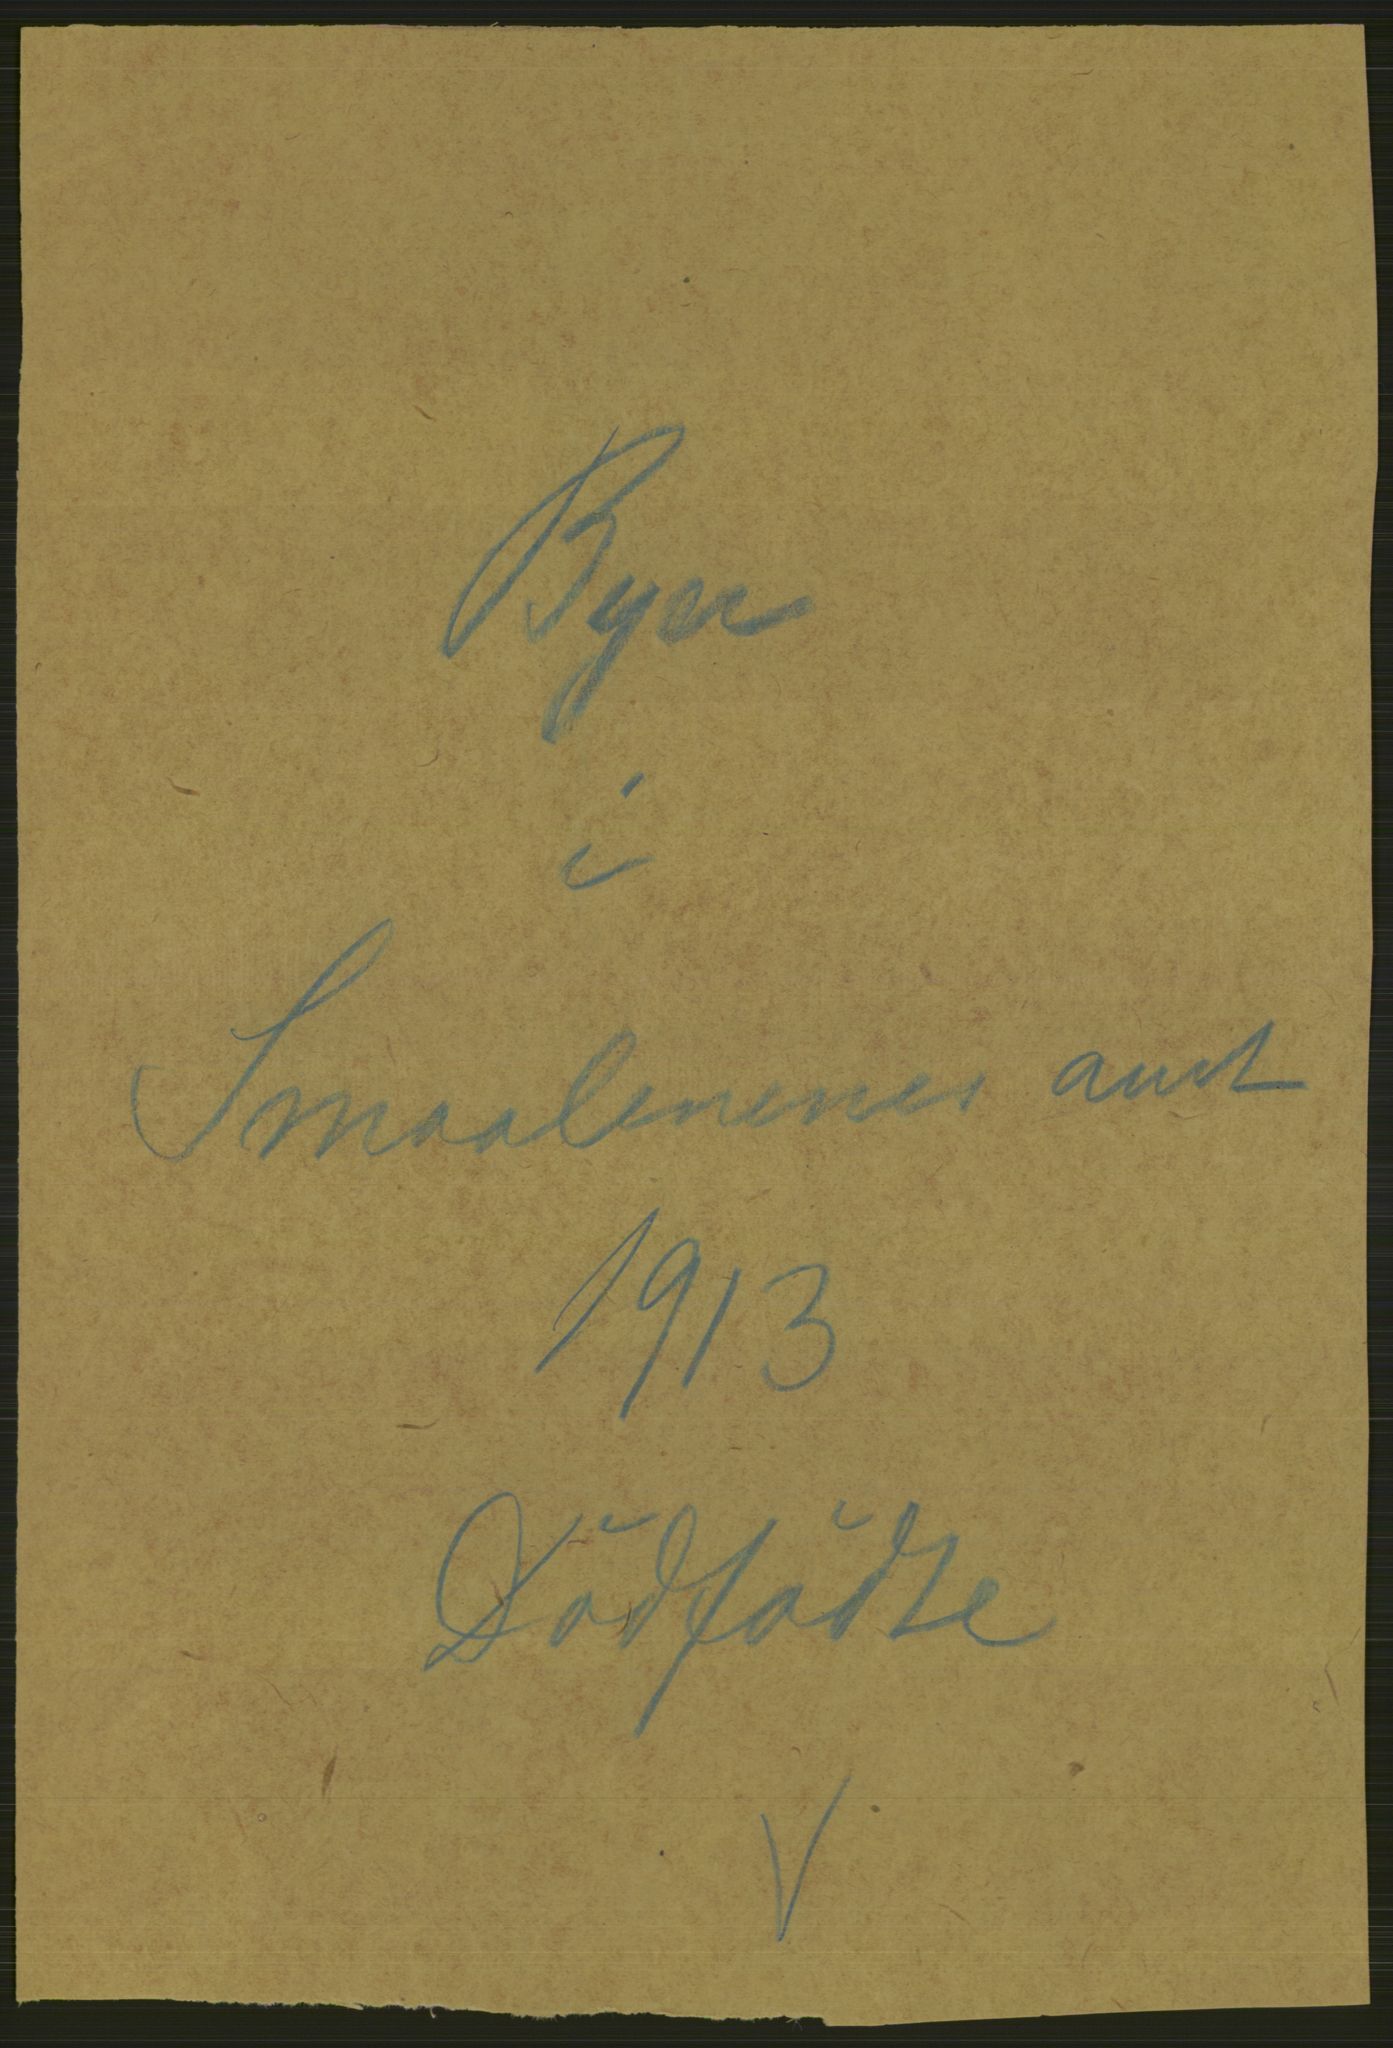 Byer
i
Smaalenenes amt
1913
Dödfödte
V